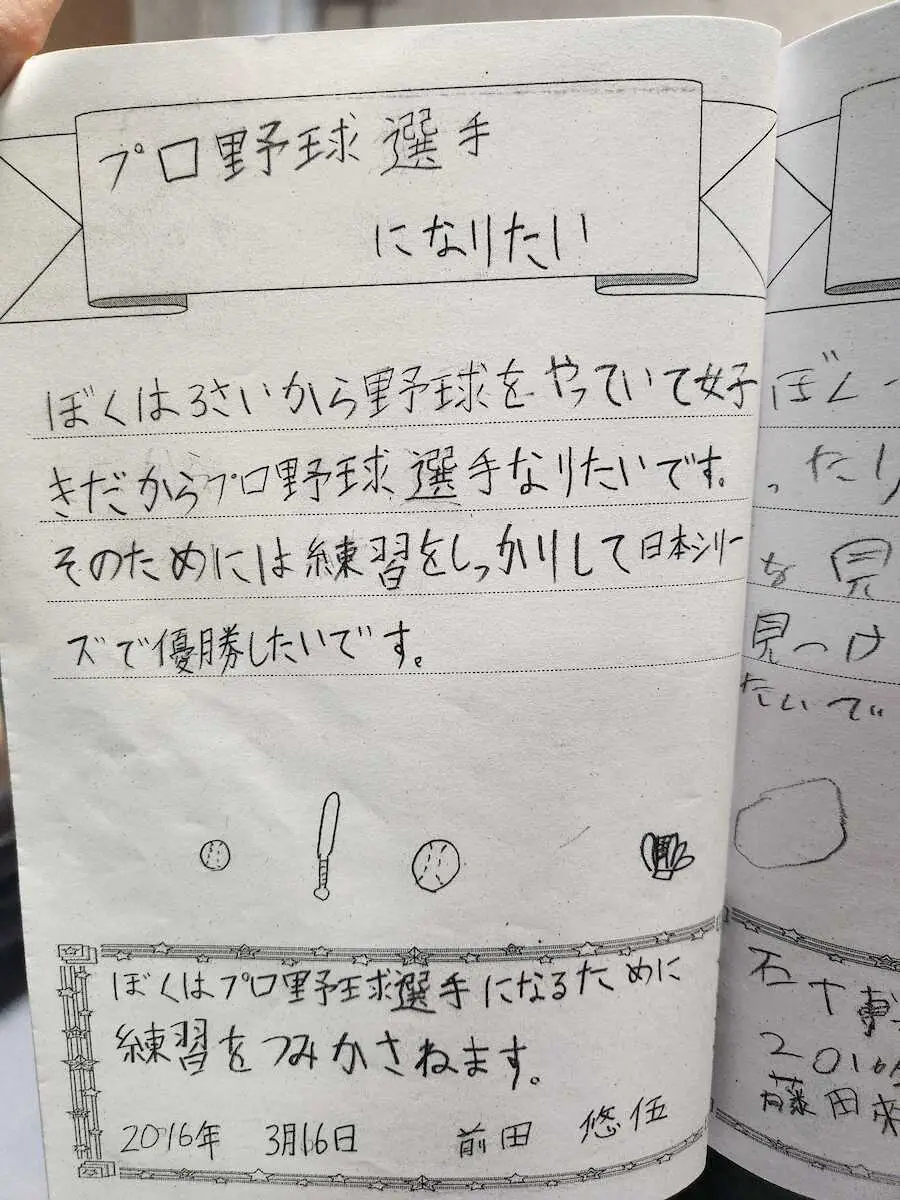 プロ野球選手
になりたい
ぼくは3さいから野球をやっていて好
きだからプロ野球選手なりたいです。
そのためには練習をしっかりして日本シリー
ズで優勝したいです。
ぼくはプロ野球選手になるために
練習をつみかさねます。
2016年 3月16日 前田 悠伍
ぼく
ったり
な 見
見つけ
たいで
2016
藤田